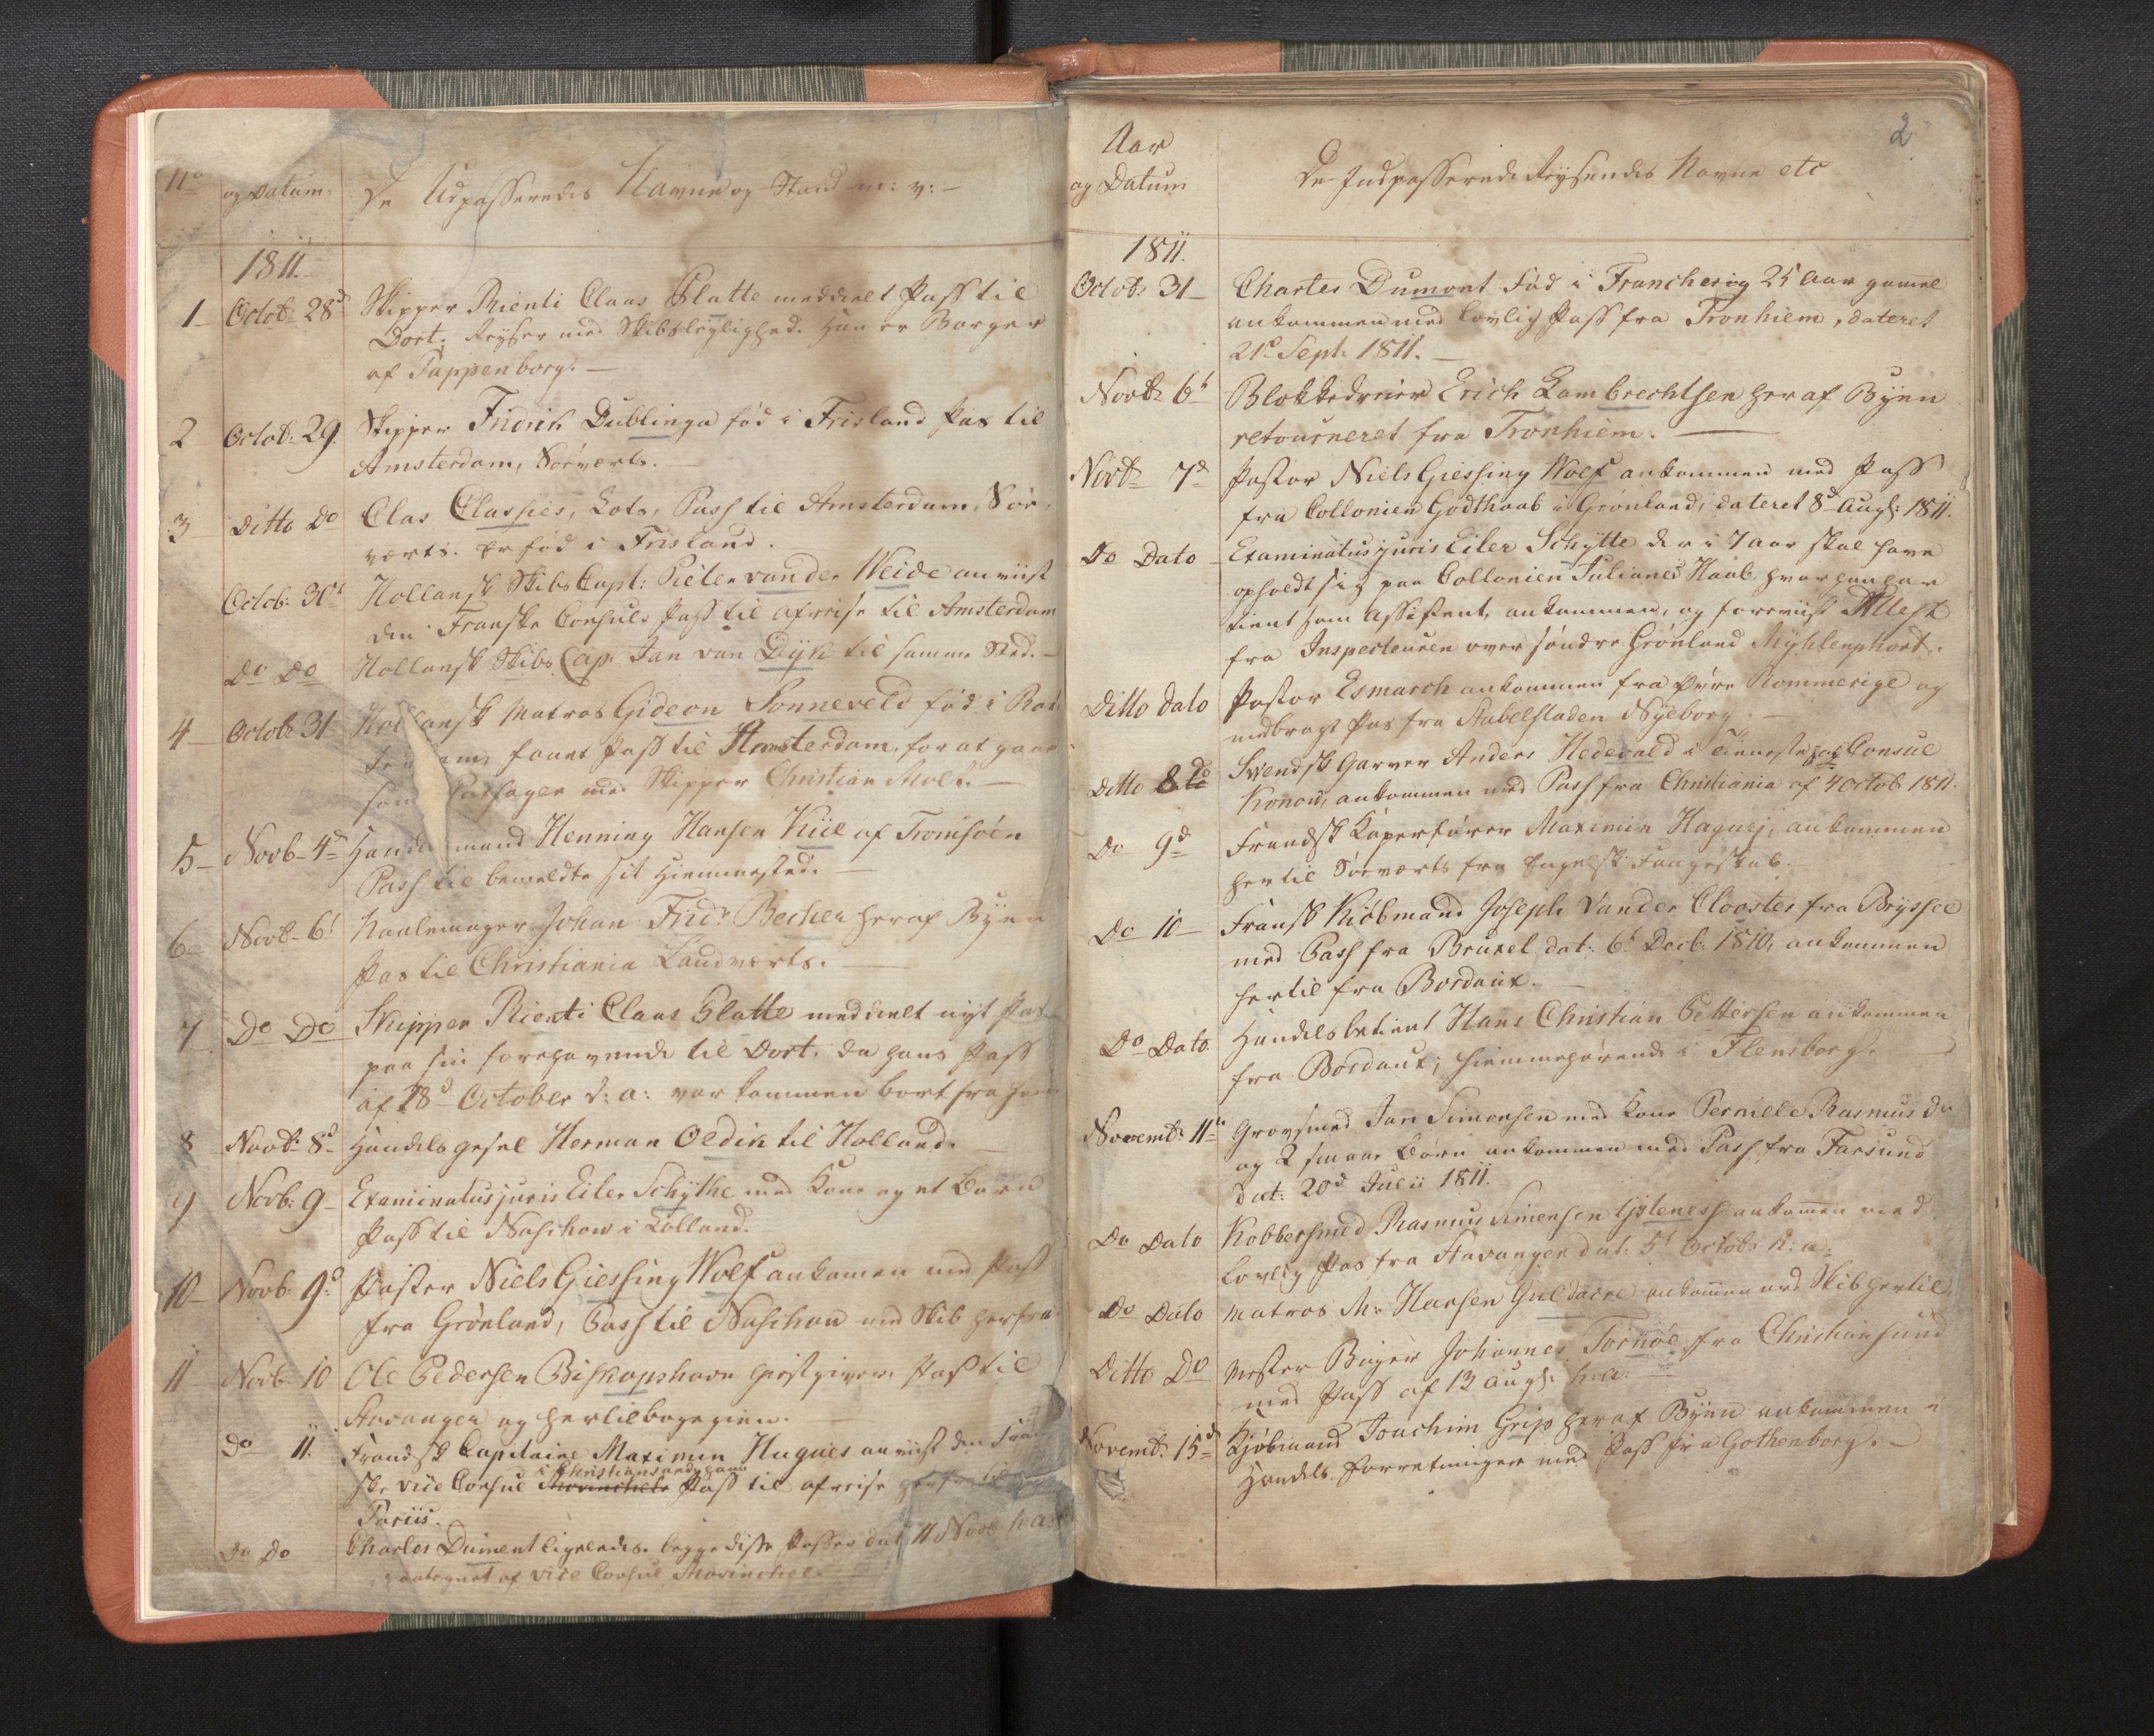 No
og Datum.
De Udpasserendes Navne og Stand m: v: -
1811.
1 - Octob. 28d Skipper Rienti Claas Glatte meddeelt Pass til
Dort; Reyser med Skibsleylighed. Han er Borger
af Pappenborg. -
2 Octob. 29. Skipper Fridrik Dublinga fød i Frisland Pas til
Amsterdam, Søeværts. -
3 Ditto Do Clas Classies, Lots, Pass til Amsterdam, Søe-
værts. Er fød i Frisland.
Octob. 31t Hollansk Skibs Capt: Pieter van der Weide anviist
den Franske Consuls Pass til afreise til Amsterdam
Do Do Hollansk Skibs Cap. Jan van Dÿk til samme Sted. -
4 - Octob 31 Hollansk Matros Gideon Sonneveld fød i Rot-
am, faaet Pass til Amsterdam, for at gaae
som Passager med Skipper Christian Molt. -
5 - Novb. 4d Handelsmand Henning Hansen Kiil af Tromsøen
Pass til bemeldte sit Hiemmested. -
6 - Novb. 6t Naalemager Johan Fridr Becher her af Byen
Pas til Christiania Landværts. -
7 Do Do Skipper Rienti Claas Glatte meddeelt nyt Pas
paa sin forehavende til Dort, da hans Pass
af 28d October d: a: var kommen bort fra ham
8 Novb. 8d Handels gesel Herman Oldik til Holland. -
9 Novb. 9 - Examinatus juris Eiler Schythe med Kone og et Barn
Pass til Naschow i Lolland.
10 - Novb. 9d Pastor Niels Giessing Wolf ankomen med Pass
fra Grønland, Pass til Naschou med Skib herfra.
11 - Novb 10 Ole Pedersen Biskopshavn giestgiver Pass til
Stavanger og hertilbage igien. -
do 11. Frandsk Capitaine Maximin Hugues anviist den Fran-
i Christiansand hans
ske vice Consul Pass til afreise
Pariis.
Do Do Charles Dumont ligeledes. begge disse Passer dat 11 Novb h: a:
paategnet af vice Consul Movinckel.
2
Aar
og Datum
De Indpasserende Reysendes Navne etc
1811.
Octob. 31 - Charles Dumont Fød i Franckerig 25 Aar gammel
ankommen med lovlig Pass fra Tronhiem, dateret
21d Sept. 1811. -
Novb. 6t Blokkedreier Erich Lambrechtsen her af Byen
retourneret fra Tronhiem. -
Novb. 7d Pastor Niels Giessing Wolf ankommen med Pass
fra Collonien Godthaab i Grønland, dateret 8d Aug: 1811.
Do Dato - Examinatus juris Eiler Schytte der i 7 aar skal have
opholdt sig paa Collonien Julianes Haab hvor han har
tient som Assistent, ankommen, og foreviist Attest
fra Inspecteuren over søndre Grønland Myhlenphort.
Ditto dato Pastor Esmarch ankommen fra Øvre Rommerige og
medbragt Pas fra Stabelstaden Nyeborg. -
Ditto 8de Svendsk Garver Anders Hedevald i Tieneste hos Consul
Konow, ankommen med Pass fra Christiania af 4 Octob 1811.
Do 9d Frandsk Kaperfører Maximin Haguej, ankommen
hertil Søeværts fra Engelsk Fangeskab.
Do 10 - Fransk Kiøbmand Joseph Vander Clooster fra Bryssel
med Pass fra Bruxel dat: 6t Decb. 1810, ankommen
hertil fra Bordaux. -
Do Dato. Handelsbetient Hans Christian Pettersen ankommen
fra Bordaux; hiemmehørende i Flensborg.
Novemb. 11te Grovsmed Jan Simonsen med Kone Pernille Rasmus Dr
og 2 smaae Børn ankommen med Pass fra Farsund
dat: 20d Julii 1811.
Do Dato Kobbersmed Rasmus Simensen ankommen med
lovlig Pas fra Stavanger dat: 5t Octob. d: a.
Do Dato Matros M. Hansen Guldager ankommen med Skib hertil.
Ditto Do Mester Bager Johannes Tornøe fra Christiansund
med Pass af 13 Aug: h: a: -
Novemb. 15d Kjøbmand Joachim Grip her af Byen ankommen i
Handels Forretninger med Pass fra Gothenborg. -